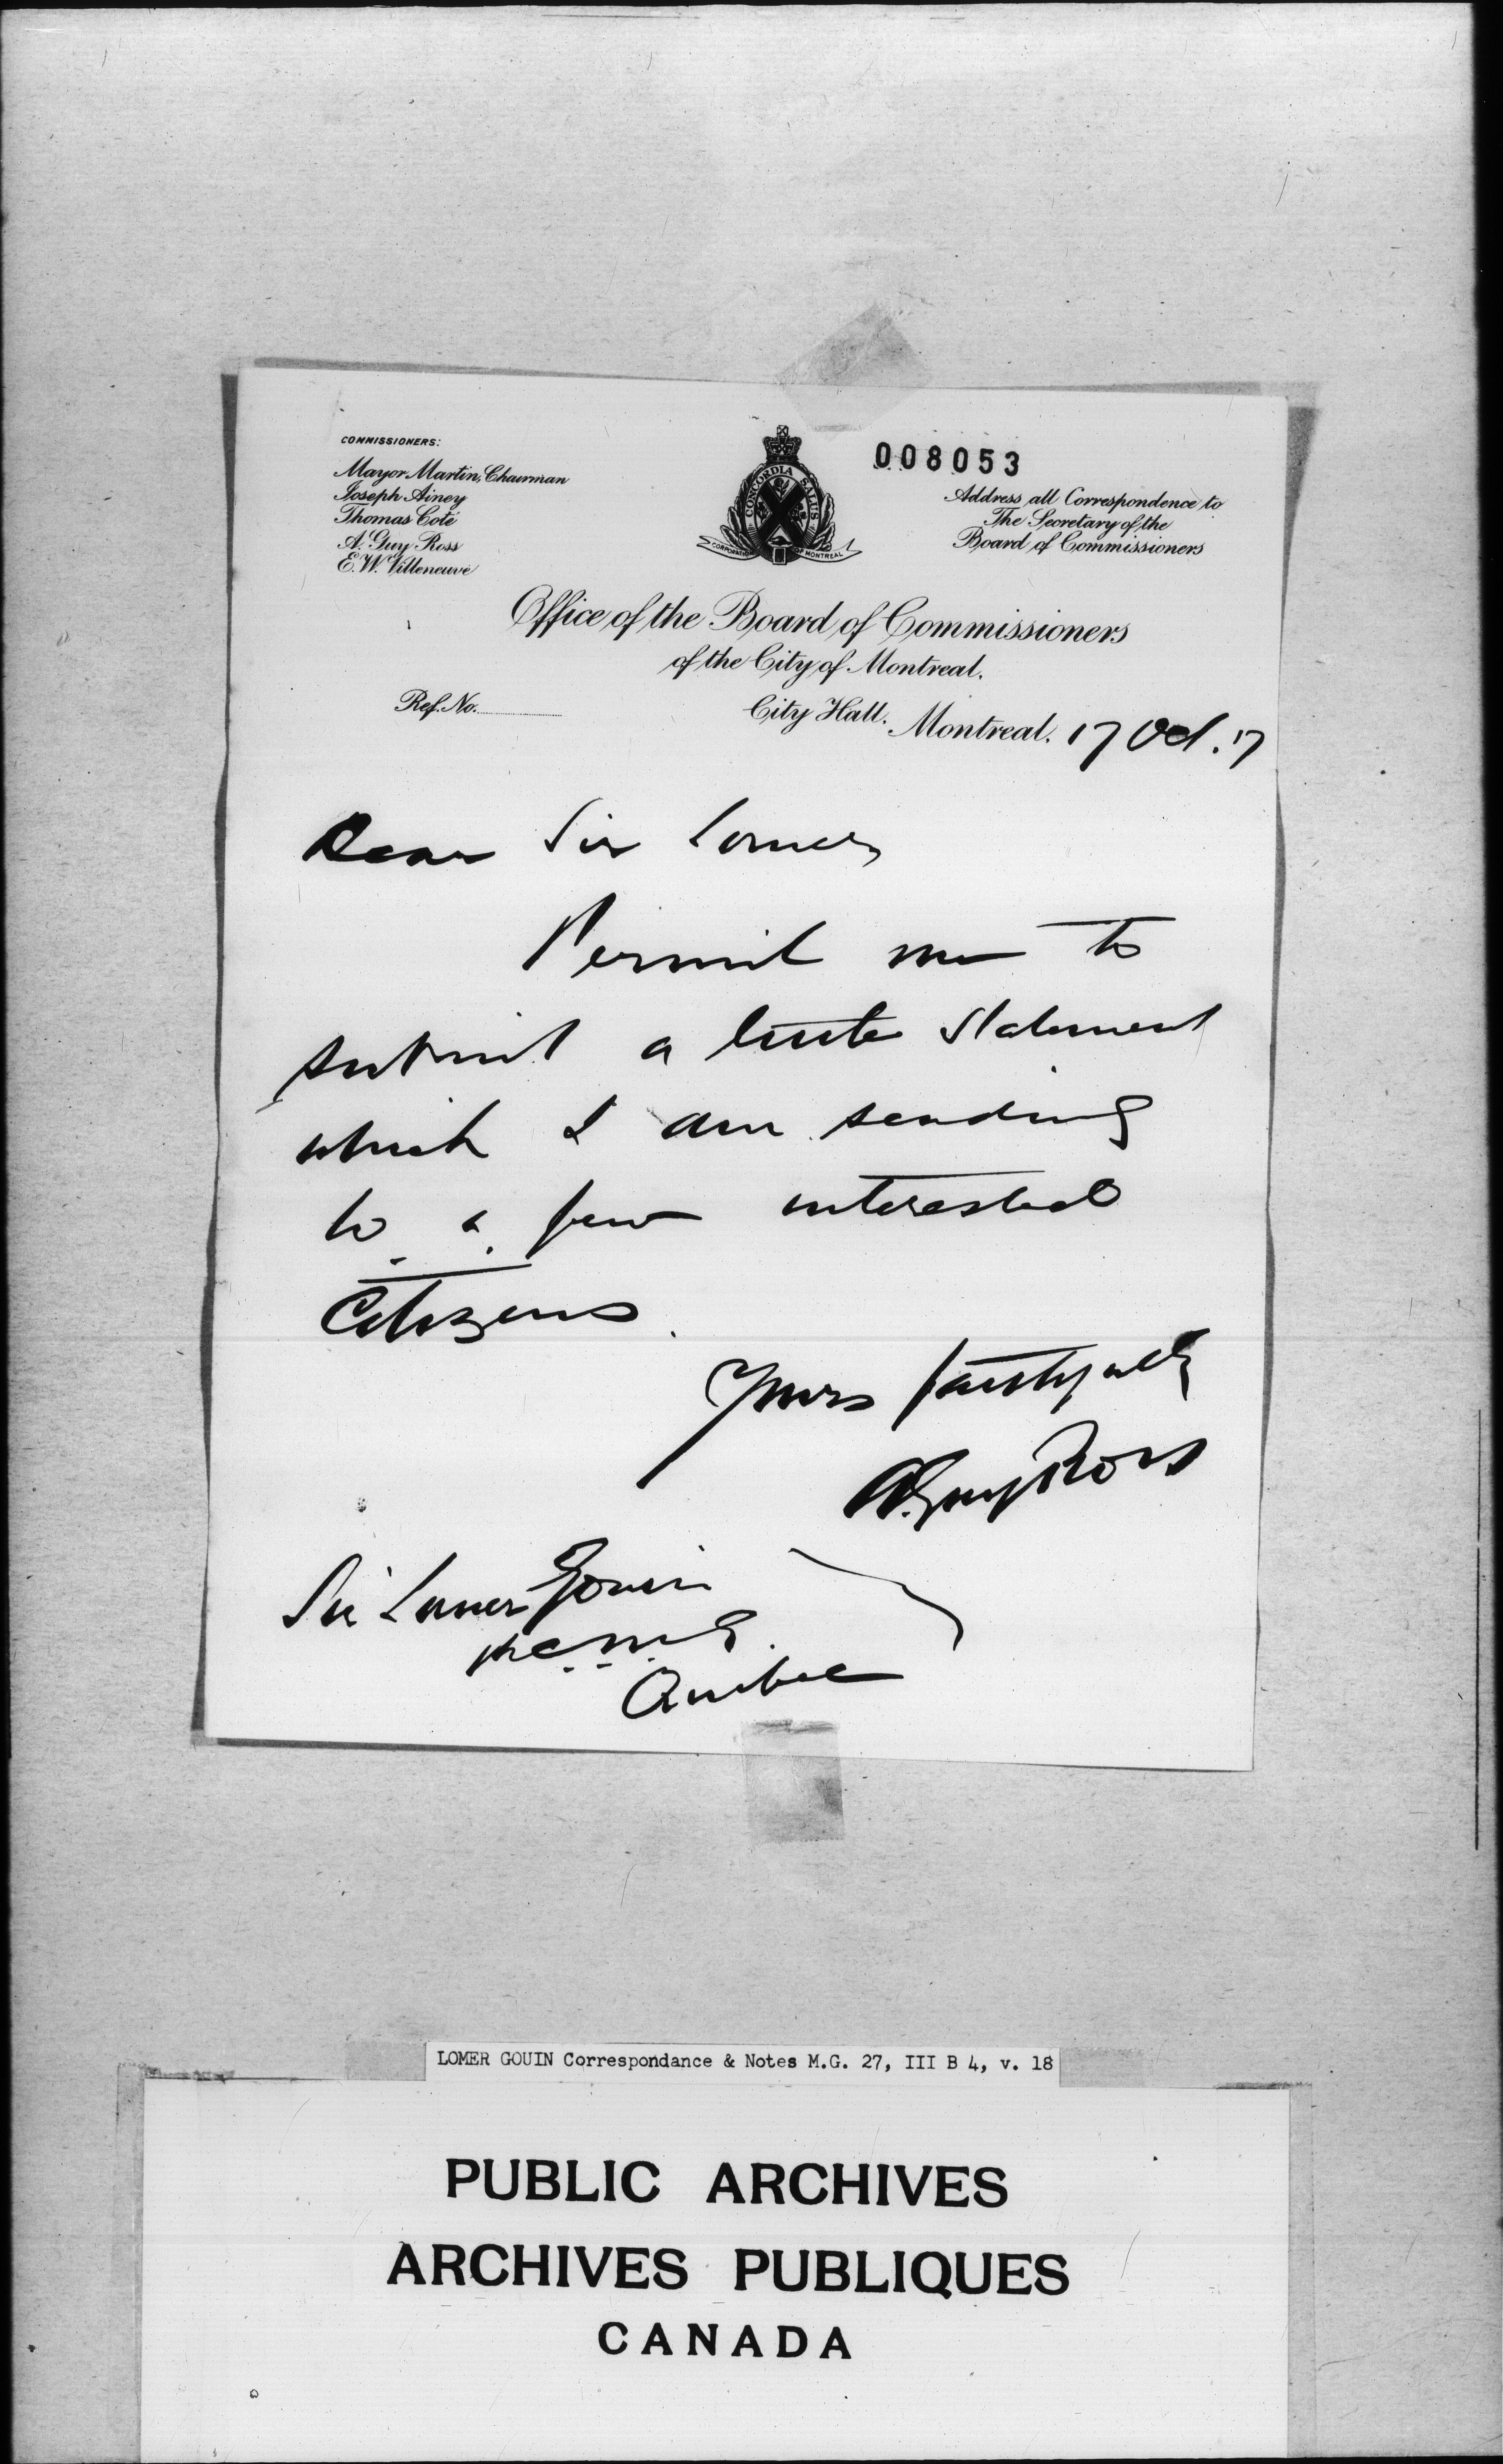 COMMISSIONERS:
Mayor Martin, Chairman
Joseph Ainey
Thomas Coté
A. Guy Ross
E. W. Villeneuve
CONCORDIA SALUS
CORPORATION OF MONTREAL
008053
Address all Correspondence to
The Secretary of the
Board of Commissioners
Office of the Board of Commissioners
of the City of Montreal.
Ref. No.
City Hall. Montreal. 17 Oct. 17
Dear Sir Lomer,
Permit me to
submit a little statement
which I am sending
to a few interested
Citizens.
Yours faithfully
A. Guy Ross
Sir Lomer Gouin
K.C.M.G.
Quebec
LOMER GOUIN Correspondance & Notes M.G. 27, III B 4, v. 18
PUBLIC ARCHIVES
ARCHIVES PUBLIQUES
CANADA